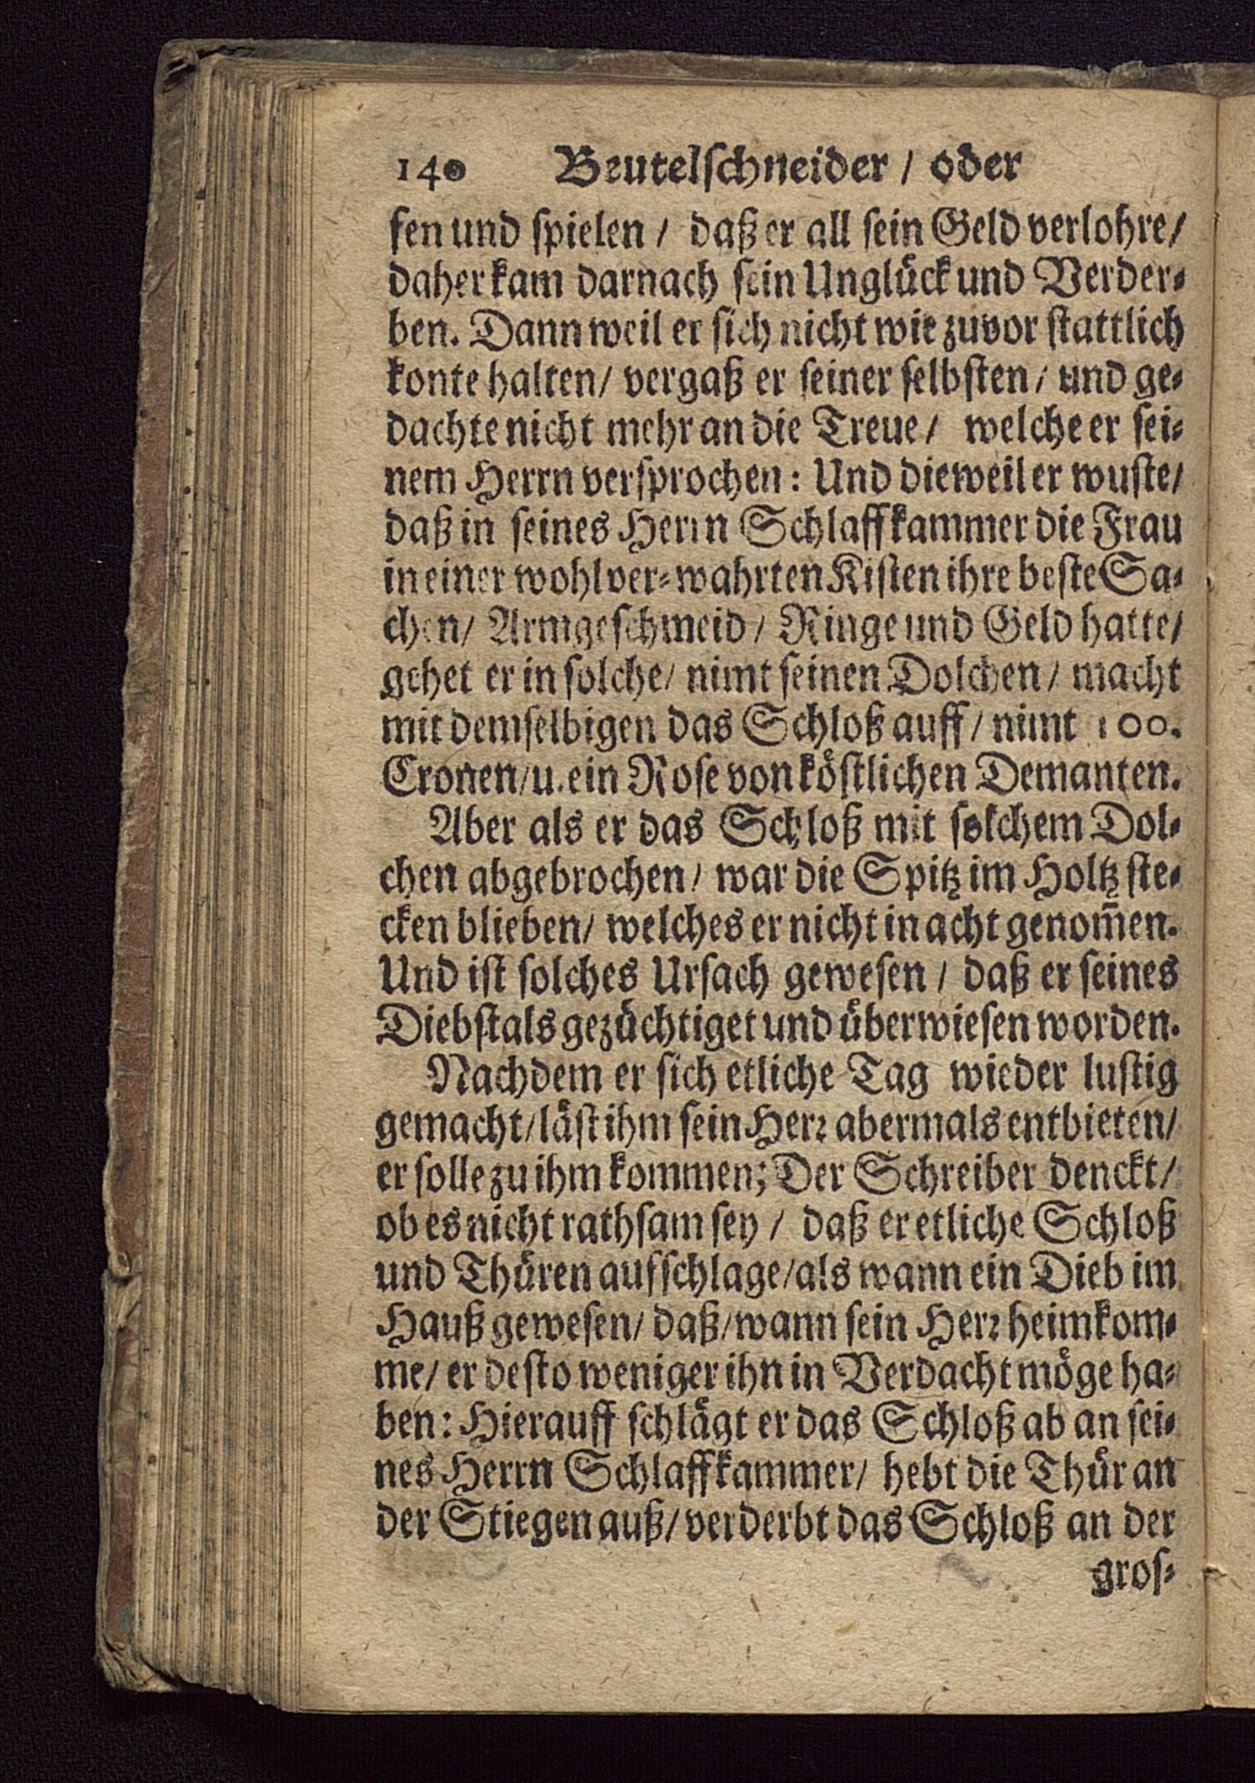 140 Beutelschneider / oder
fen und spielen / daß er all sein Geld verlohre/
daher kam darnach sein Unglück und Verder-
ben. Dann weil er sich nicht wie zuvor stattlich
konte halten/ vergaß er seiner selbsten / und ge-
dachte nicht mehr an die Treue / welche er sei-
nem Herrn versprochen: Und dieweil er wuste/
daß in seines Herrn Schlaffkammer die Frau
in einer wohl ver-wahrten Kisten ihre beste Sa-
chen/ Armgeschmeid / Ringe und Geld hatte/
gehet er in solche/ nimt seinen Dolchen / macht
mit demselbigen das Schloß auff / nimt 100.
Cronen/u. ein Rose von köstlichen Demanten.
Aber als er das Schloß mit solchem Dol-
chen abgebrochen/ war die Spitz im Holtz ste-
cken blieben/ welches er nicht in acht genom̃en.
Und ist solches Ursach gewesen / daß er seines
Diebstals gezüchtiget und überwiesen worden.
Nachdem er sich etliche Tag wieder lustig
gemacht/läst ihm sein Herr abermals entbieten/
er solle zu ihm kommen; Der Schreiber denckt/
ob es nicht rathsam sey / daß er etliche Schloß
und Thüren aufschlage/als wann ein Dieb im
Hauß gewesen/ daß/wann sein Herr heimkom-
me/ er desto weniger ihn in Verdacht möge ha-
ben: Hierauff schlägt er das Schloß ab an sei-
nes Herrn Schlaffkammer/ hebt die Thür an
der Stiegen auß/verderbt das Schloß an der
gros-